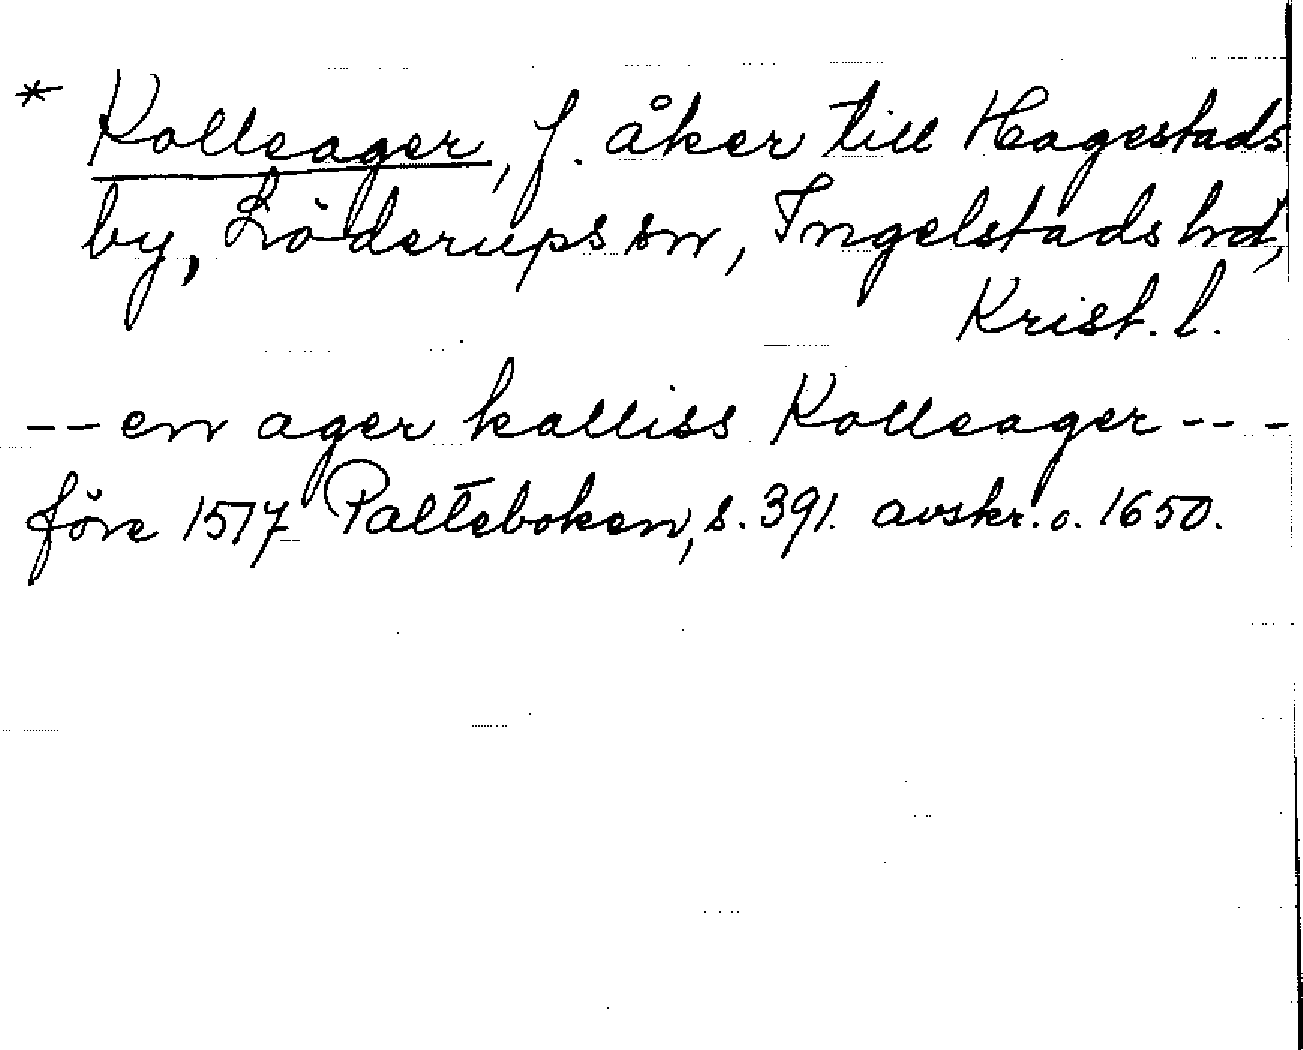 * Kolleager, f. åker till Hagestads
by, Löderups sn, Ingelstads hd,
Krist. l.
-- en ager kalliss Kolleager ---
före 1517 Palteboken, s. 391. avskr. o. 1650.